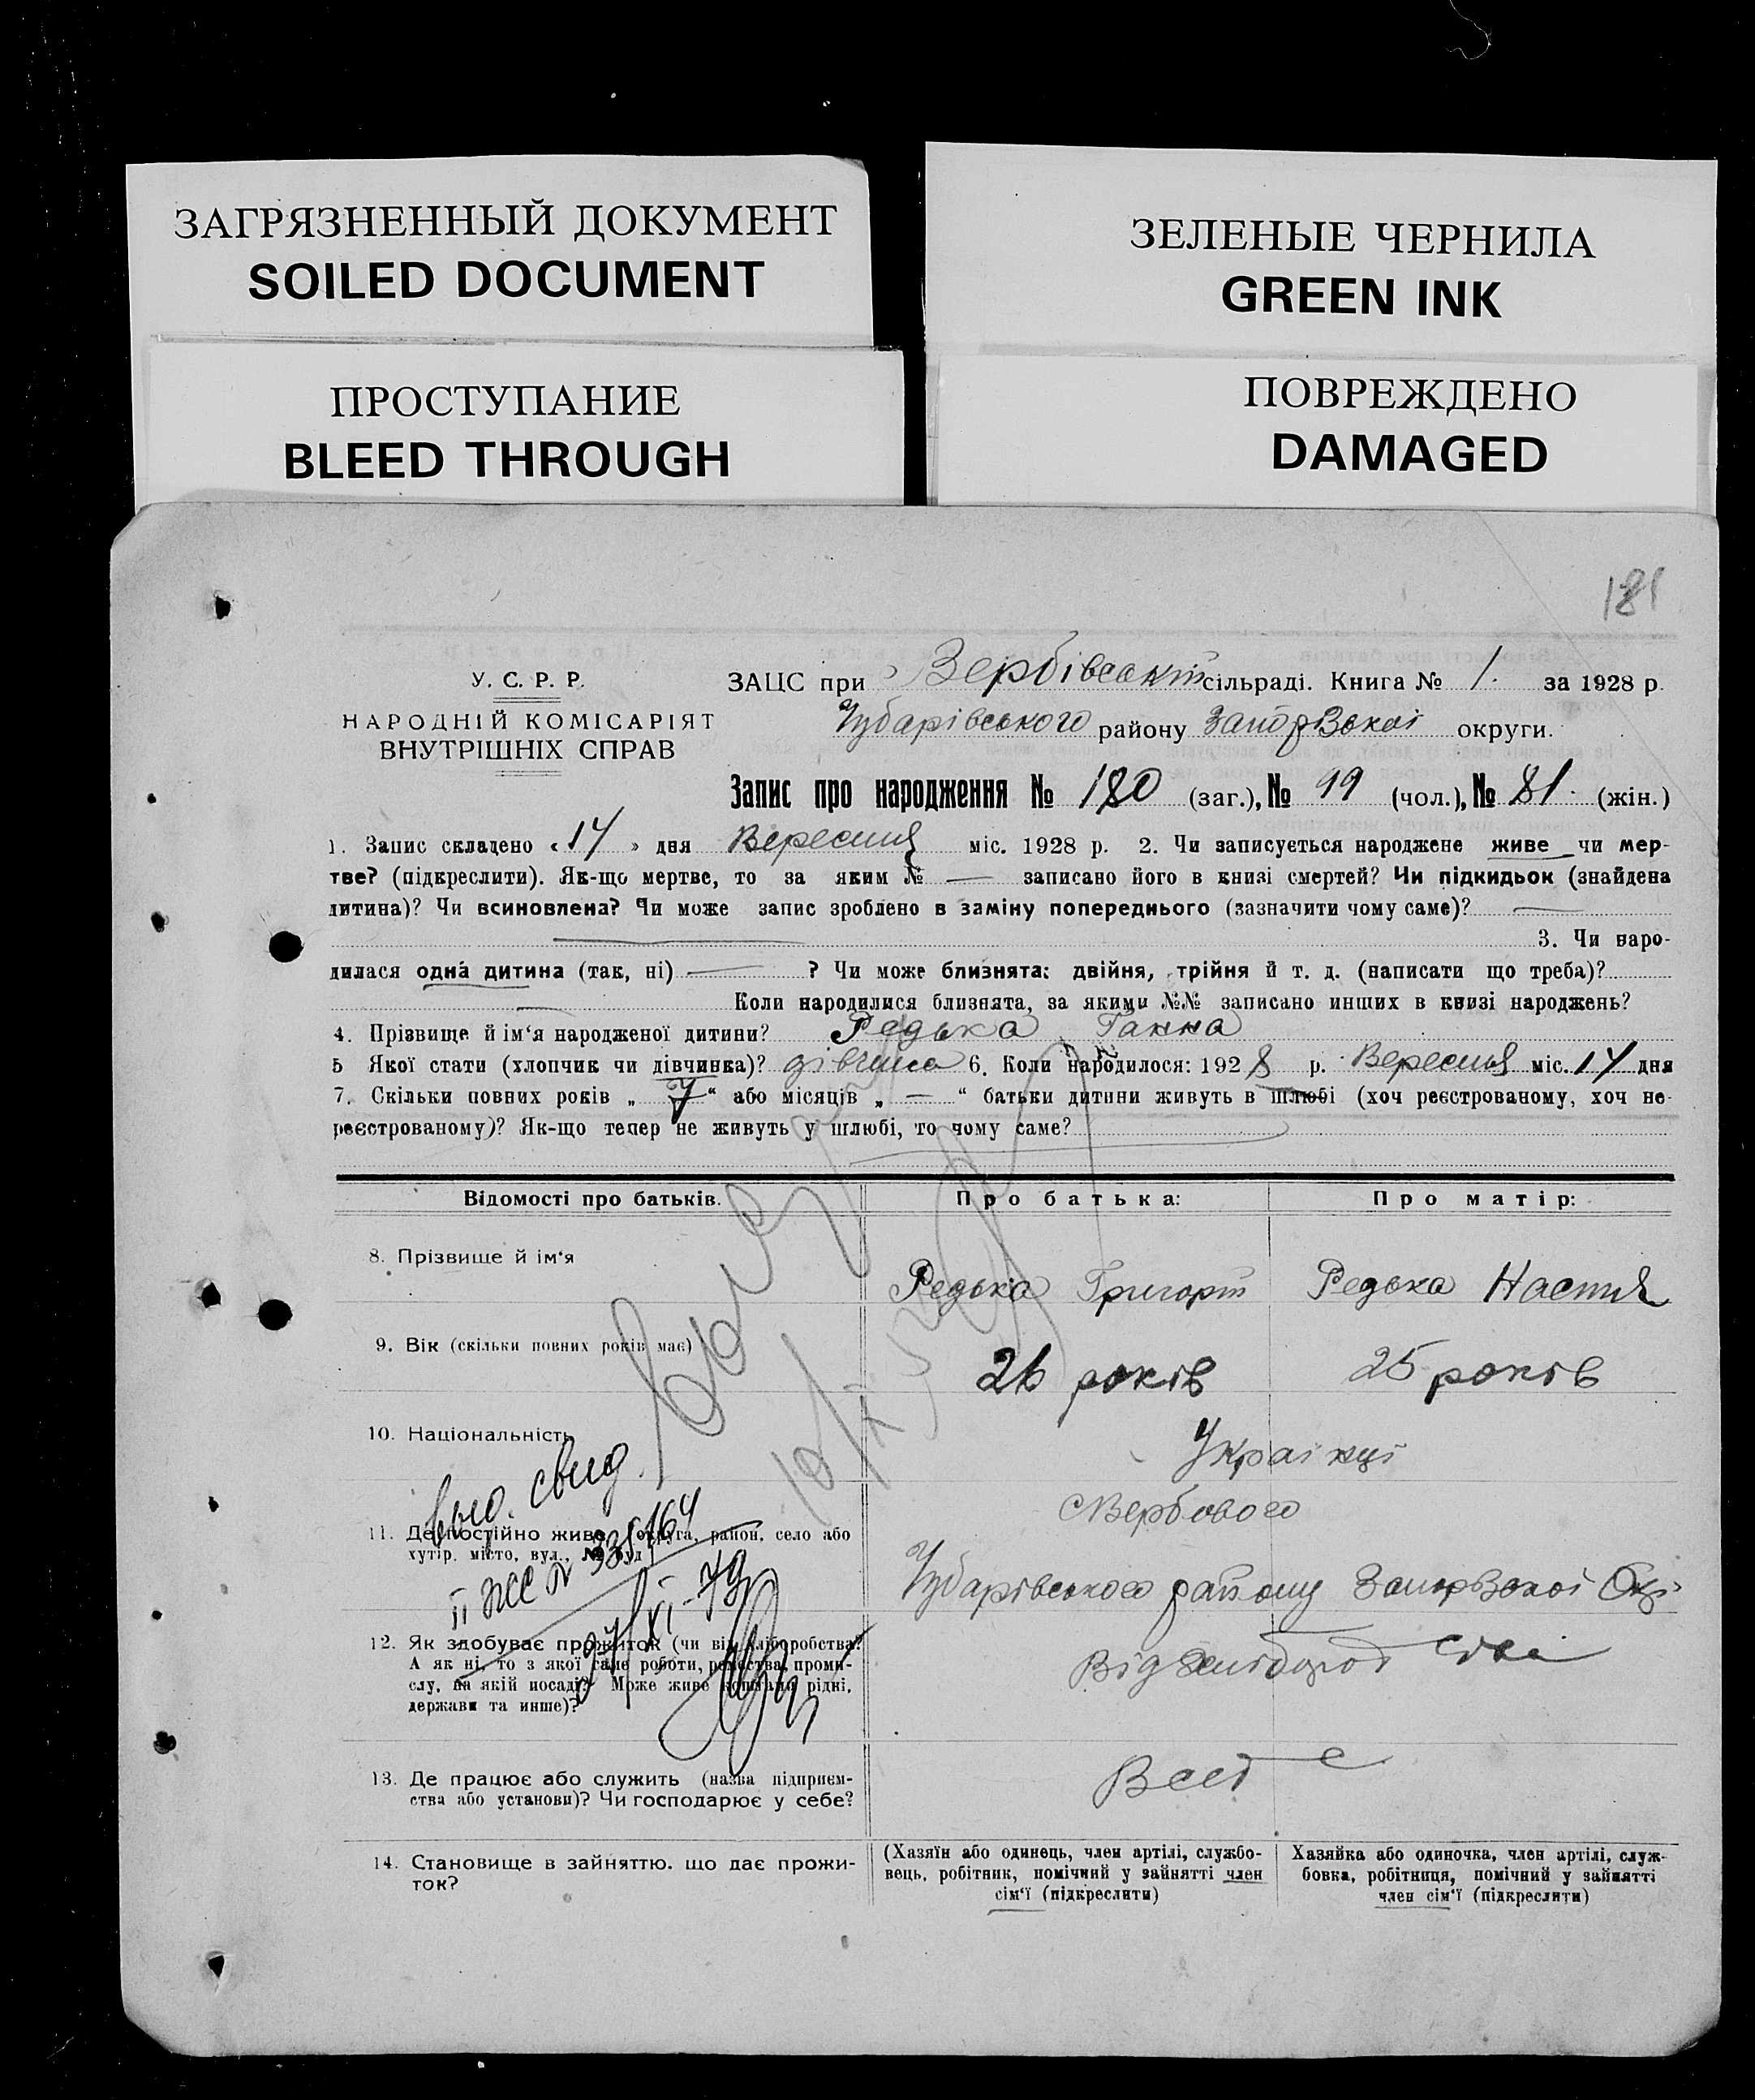 ЗАГРЯЗНЕННЫЙ ДОКУМЕНТ
SOILED DOCUMENT
ЗЕЛЕНЫЕ ЧЕРНИЛА
GREEN INK
ПРОСТУПАНИЕ
BLEED THROUGH
ПОВРЕЖДЕНО
DAMAGED
181
У. С. Р. Р.
НАРОДНІЙ КОМІСАРІЯТ
ВНУТРІШНІХ СПРАВ
ЗАЦС при Вербівській сільраді. Книга № 1. за 1928 р.
Чубарівського району Запорізької округи.
Запис про народження № 180 (заг.), № 99 (чол.), № 81. (жін.)
1. Запис складено « 14 » дня Вересня міс. 1928 р. 2. Чи записується народжене живе чи мер-
тве? (підкреслити). Як-що мертве, то за яким № — записано його в книзі смертей? Чи підкидьок (знайдена
дитина)? Чи всиновлена? Чи може запис зроблено в заміну попереднього (зазначити чому саме)? —
3. Чи наро-
дилася одна дитина (так, ні) — ? Чи може близнята: двійня, трійня й т. д. (написати що треба)?
Коли народилися близнята, за якими №№ записано инших в книзі народжень?
4. Прізвище й ім‘я народженої дитини? Редька Ганна
5 Якої стати (хлопчик чи дівчинка)? дівчина 6. Коли народилося: 1928 р. Вересня міс. 14 дня
7. Скільки повних років „ 7 “ або місяців „ — “ батьки дитини живуть в шлюбі (хоч реєстрованому, хоч не-
реєстрованому)? Як-що тепер не живуть у шлюбі, то чому саме?
Відомості про батьків.
Про батька:
Про матір:
8. Прізвище й ім‘я
Редька Григорій
Редька Настя
9. Вік (скільки повних років має)
26 років
25 років
10. Національність
Українці
выд. свид.
II ЖС № 335164
11. Де постійно живе (округа, район, село або
хутір, місто, вул., № буд.)
с Вербового
Чубарівського району Запорізької Окр.
12. Як здобуває прожиток (чи від хліборобства?
А як ні, то з якої саме роботи, ремества, проми-
слу, на якій посаді? Може живе коштами рідні,
держави та инше)?
Від хліборобства
13. Де працює або служить (назва підприєм-
ства або установи)? Чи господарює у себе?
В себе
14. Становище в зайняттю, що дає прожи-
ток?
(Хазяїн або одинець, член артілі, службо-
вець, робітник, помічний у зайнятті член
сім‘ї (підкреслити)
Хазяйка або одиночка, член артілі, служ-
бовка, робітниця, помічний у зайнятті
член сім‘ї (підкреслити)